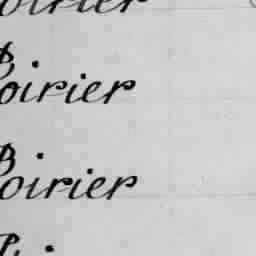 oirier
oirier
oirier